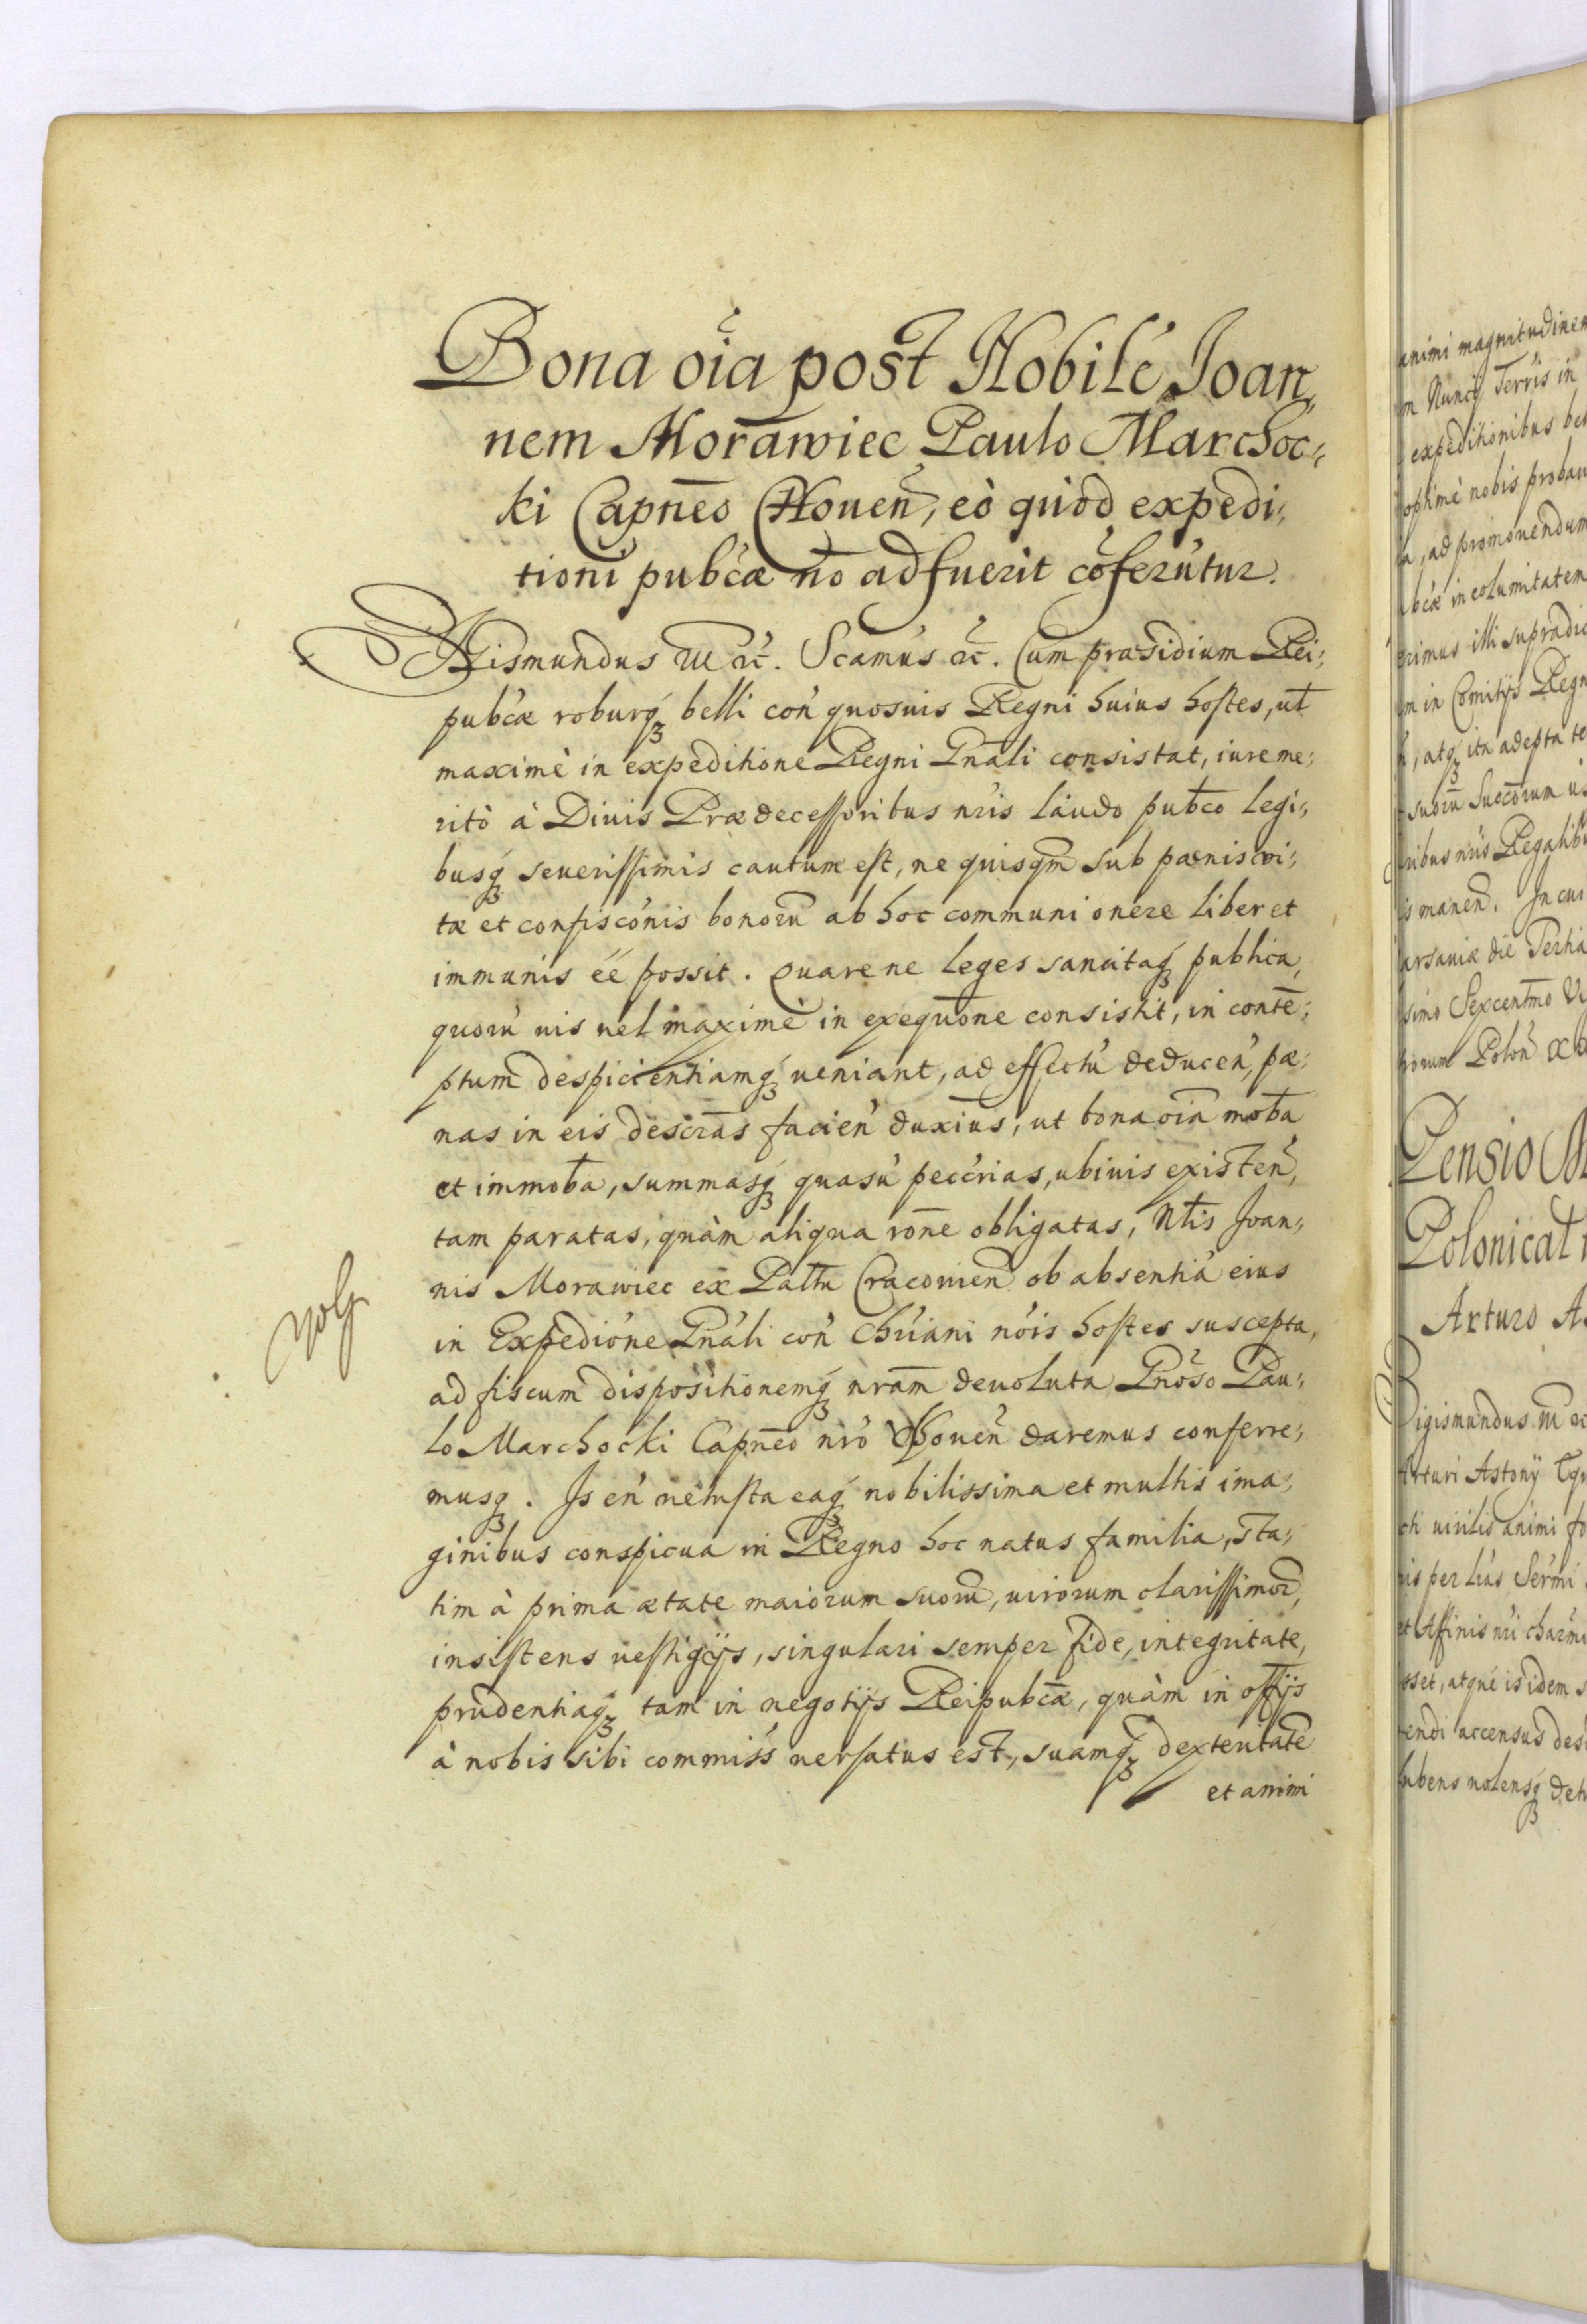 Bona oĩa post Nobilẽ Joan,
nem Morawiec Paulo Marchoc,,
ki Capn̄eo Chouen̄, eò quod expedi,,
tioni pubcæ nō adfuerit cõferũtur.
Sigismundus III ꝛc. Scamus ꝛc. Cum præsidium Rei,,
pubcæ roburq́ʒ belli con̄ quosuis Regni huius hostes, ut
maximè in expeditione Regni Gnāli consistat, iure me,,
ritò à Diuis Prædecessoribus nr̄is laudo pub̄co legi,,
busq́ʒ seuerissimis cautum est, ne quisqm̄ sub pænis vi,,
tæ et confiscōnis bonorū ab hoc communi onere liber et
immunis eē possit. Quare ne leges sancitaq́ʒ publica,
quorū uis uel maximè in exequōne consistit, in contē,,
ptum despicientiamq́ʒ ueniant, ad effectū deducen̄, pæ,,
nas in eis descrās facien̄ duxim̄us, ut bona oīa mob̄a
et immob̄a, summasq́ʒ quasū pecc̄rias, ubiuis existen̄,
tam paratas, quàm aliqua rōne obligatas, Nt̄is Joan,,
nis Morawiec ex Pall̄tu Cracouien̄ ob absentiā eius
in Expediōne Gnāli con̄ Chr̄iani nōis hostes suscepta,
ad fiscum dispositionemq́ʒ nrām deuoluta Gnōso Pau,,
lo Marchocki Capn̄eo nrō Chouen̄ daremus conferre,,
musqʒ. Is en̄ uetusta eaq́ʒ nobilissima et multis ima,,
ginibus conspicua in Regno hoc natus familia, sta,,
tim à prima ætate maiorum suorū, uirorum clarissimor̄,
insistens uestigijs, singulari semper fide, integritate,
prudentiaq́ʒ tam in negotijs Reipubcæ, quàm in offijs
à nobis sibi commiss̄ uersatus est, suamq́ʒ dexteritatē
et animi
animi magnitudinem
m Nuncij Terris in
expeditionibus be
optimè nobis probau
a, ad promouendum
ubcæ incolumitatem
rimus illi supradic
m in Comitijs Regn
, atqʒ ita adepta te
suorū Succorum u
ribus nr̄is Regalibu
is manen̄. In cui
arsauiæ die Tertia
simo Sexcentm̄o
norum Polon̄
Pensio
Polonical
Arturo A
Sigismundus III
Arturi Astonij
ti uirilis animi fo
is per lrās Serm̄i
et Affinis nr̄i charm̄i
sset, atque is idem s
endi accensus des
lubens uolensq́ʒ